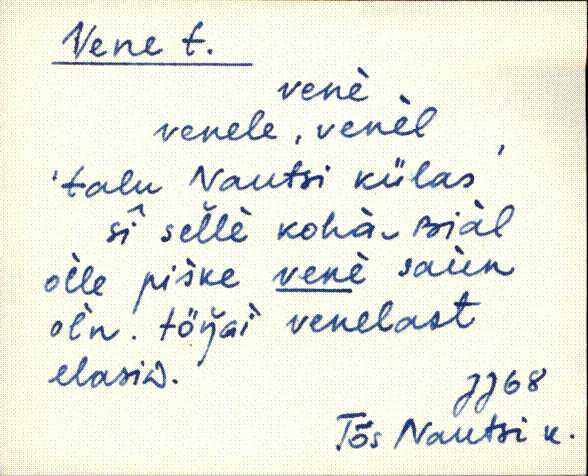 Vene t.
venè
venele, venèl
'talu Nautsi külas,
sî sèllè kohà
òlle pìske venè saùn
olǹ. töŋ̀ai venelast
elasiɷ.
JJ68
Tõs Nautsi k.